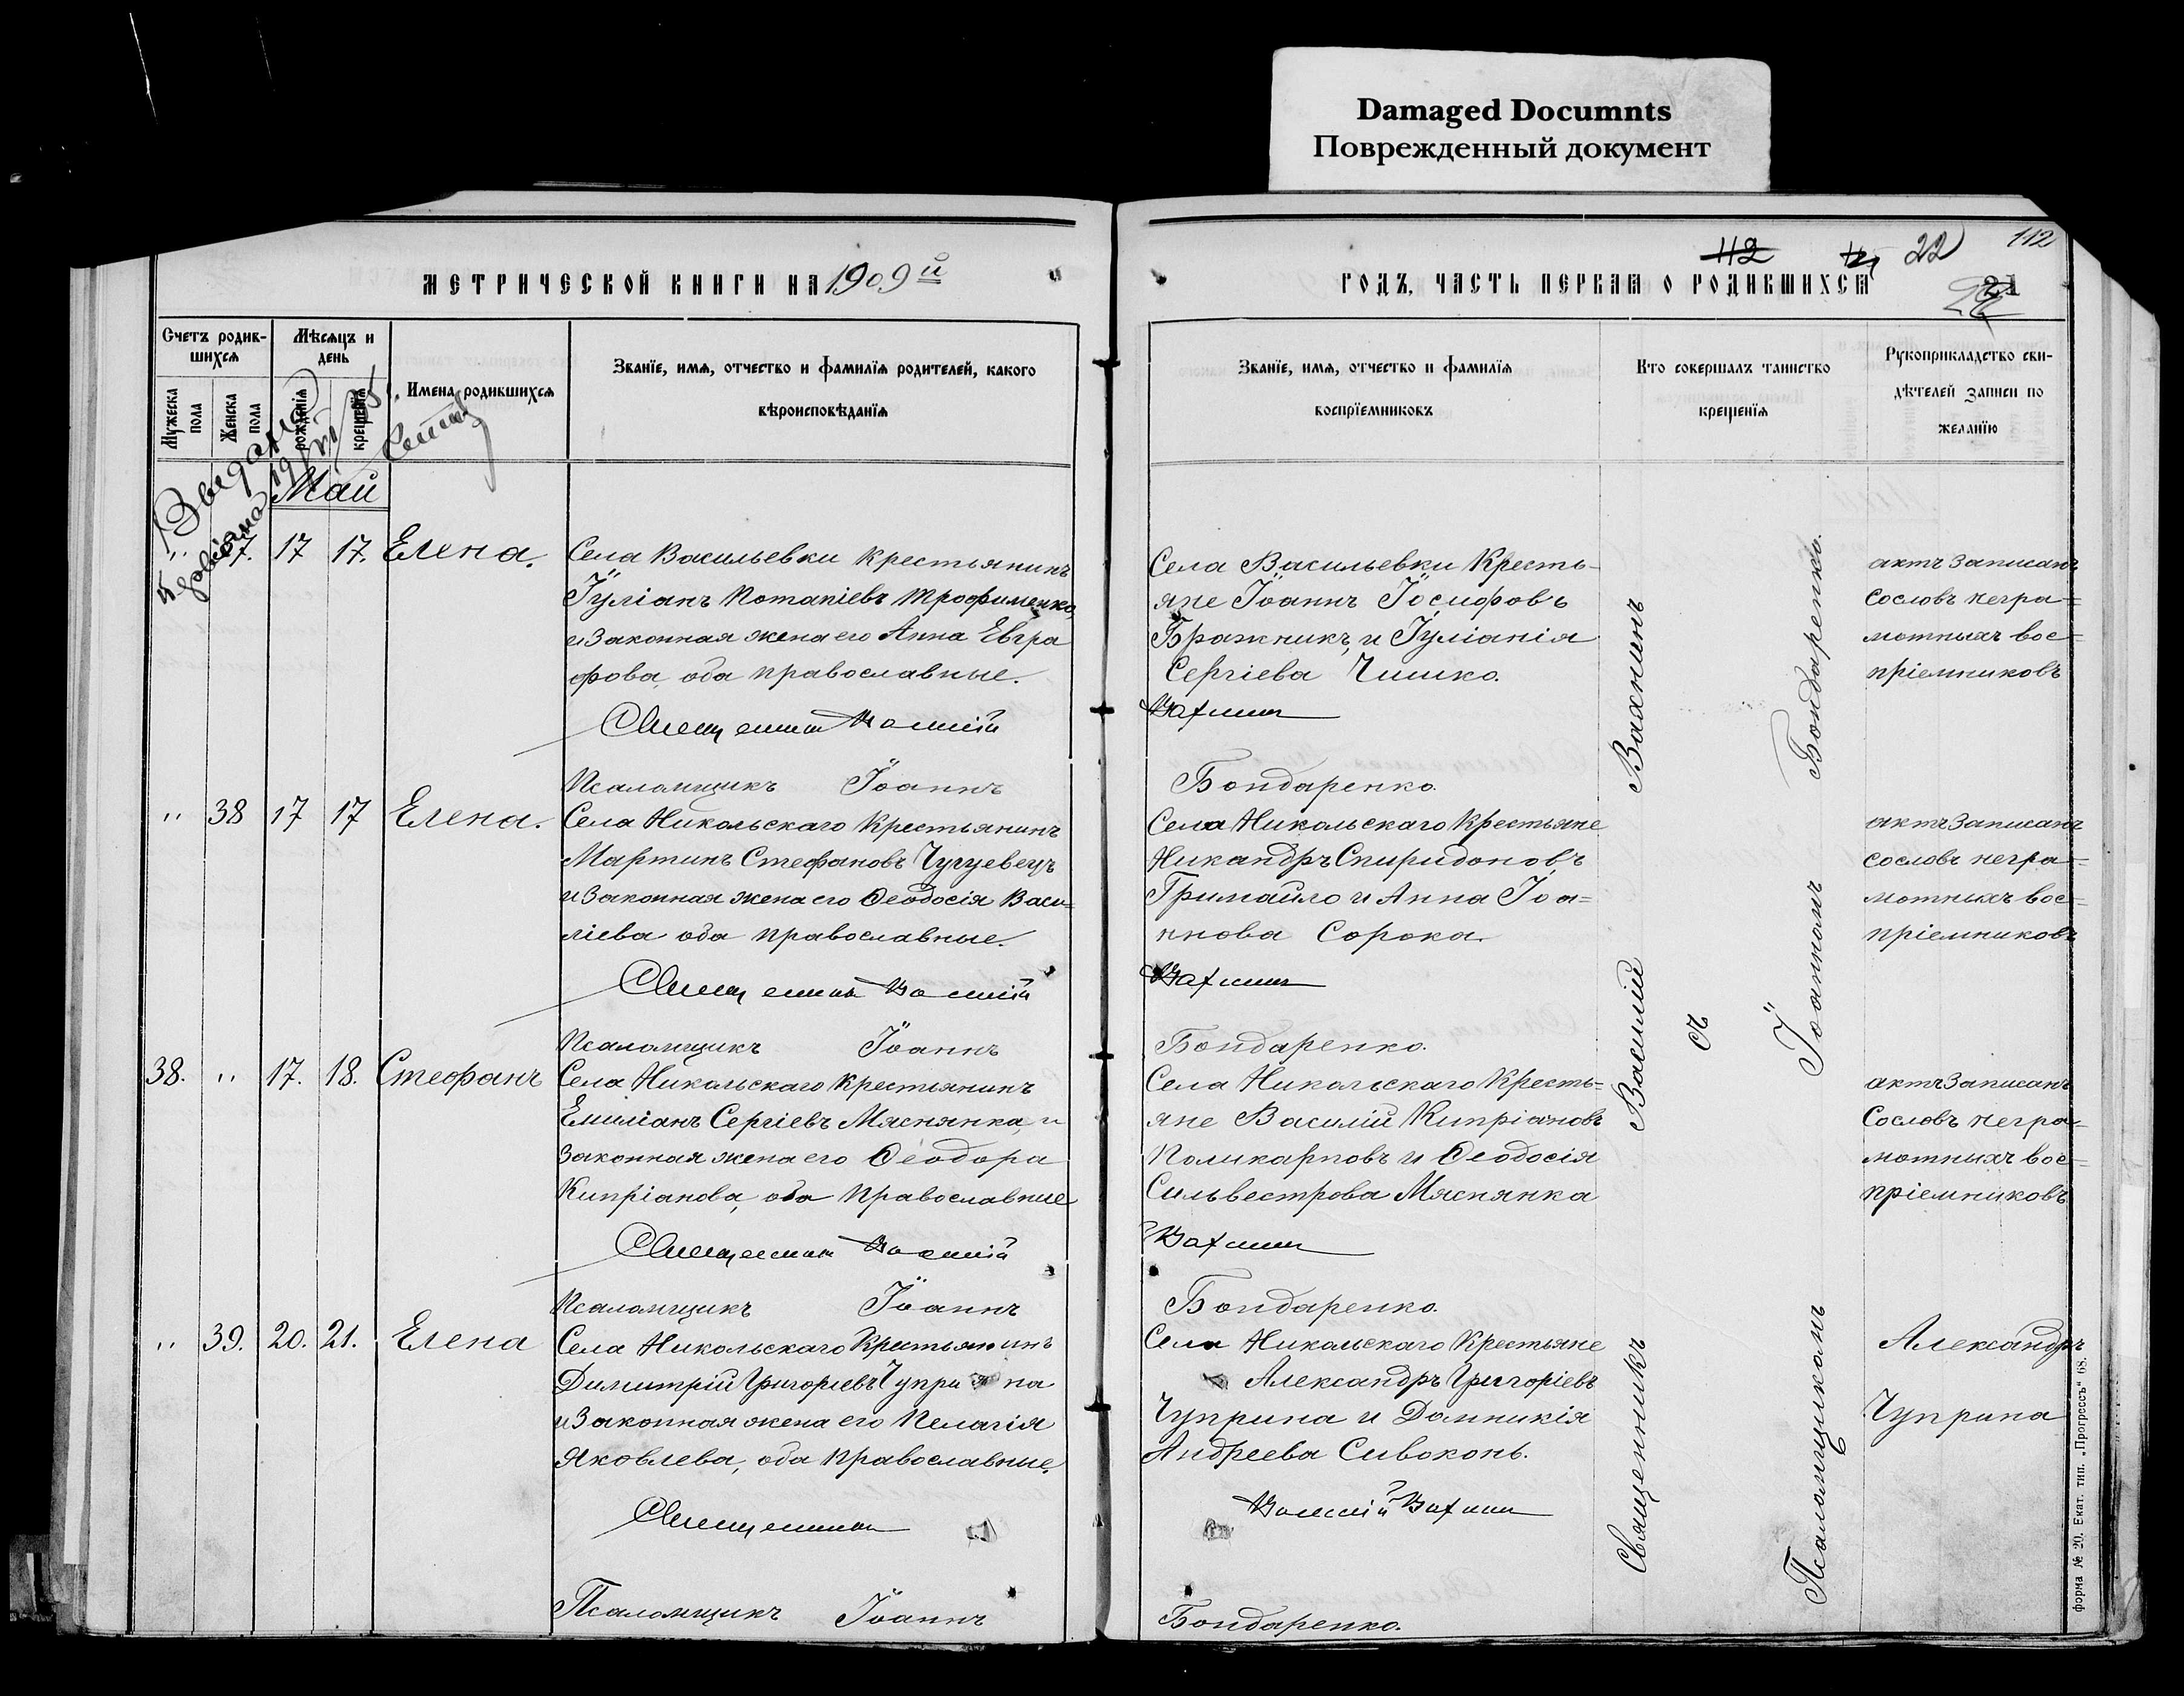 Damaged Documnts
Поврежденный документ
112
22
112
21
МЕТРИЧЕСКОЙ КНИГИ НА 1909й
ГОДЪ, ЧАСТЬ ПЕРВАЯ О РОДИВШИХСЯ
Счетъ родив-
шихся
Мужеска пола
Женска пола
Мѣсяцъ и
день
рожденія
крещенія
Имена родившихся
Званіе, имя, отчество и фамилія родителей, какого
вѣроисповѣданія
Званіе, имя, отчество и фамилія
воспріемниковъ
Кто совершалъ таинство
крещенія
Рукоприкладство сви-
дѣтелей записи по
желанію
Май
" 37. 17 17. Елена.
Села Васильевки крестьянинъ
Іуліанъ Потапіевъ Трофименко,
и законная жена его Анна Евгра
фова, оба православные.
Священникъ Василій
Псаломщикъ Іоаннъ
Села Васильевки Кресть-
яне Іоаннъ Іосифовъ
Бражникъ, и Іуліанія
Сергіева Чишко.
Вахнинъ
Бондаренко.
актъ записанъ
со словъ негра=
мотныхъ вос=
пріемниковъ
" 38 17 17 Елена.
Села Никольскаго Крестьянинъ
Мартинъ Стефановъ Чугуевецъ
и законная жена его Ѳеодосія Васи=
ліева оба православные.
Священникъ Василій
Псаломщикъ Іоаннъ
Села Никольскаго Крестьяне
Никандръ Спиридоновъ
Гримайло и Анна Іоа=
ннова Сорока.
Вахнинъ
Бондаренко.
актъ записанъ
со словъ негра=
мотныхъ вос=
пріемниковъ
38. " 17. 18. Стефанъ
Села Никольскаго крестьянинъ
Емиліанъ Сергіевъ Мяснянка, и
законная жена его Ѳеодора
Кипріанова, оба Православные
Священникъ Василій
Псаломщикъ Іоаннъ
Села Никольскаго Кресть=
яне Василій Кипріановъ
Поликарповъ и Ѳеодосія
Сильвестрова Мяснянка
Вахнинъ
Бондаренко.
актъ записанъ
со словъ негра=
мотныхъ вос=
пріемниковъ
" 39. 20. 21. Елена
Села Никольскаго Крестьянинъ
Димитрій Григоріевъ Чуприна
и законная жена его Пелагія
Яковлева, оба православные.
Священникъ
Псаломщикъ Іоаннъ
Села Никольскаго Крестьяне
Александръ Григоріевъ
Чуприна и Домникія
Андреева Сивоконь.
Василій Вахнинъ
Бондаренко.
Александръ
Чуприна
Священникъ Василій Вахнинъ
съ
Псаломщикомъ Іоанномъ Бондаренко.
форма № 20. Екат. тип. „Прогрессъ“ 68.